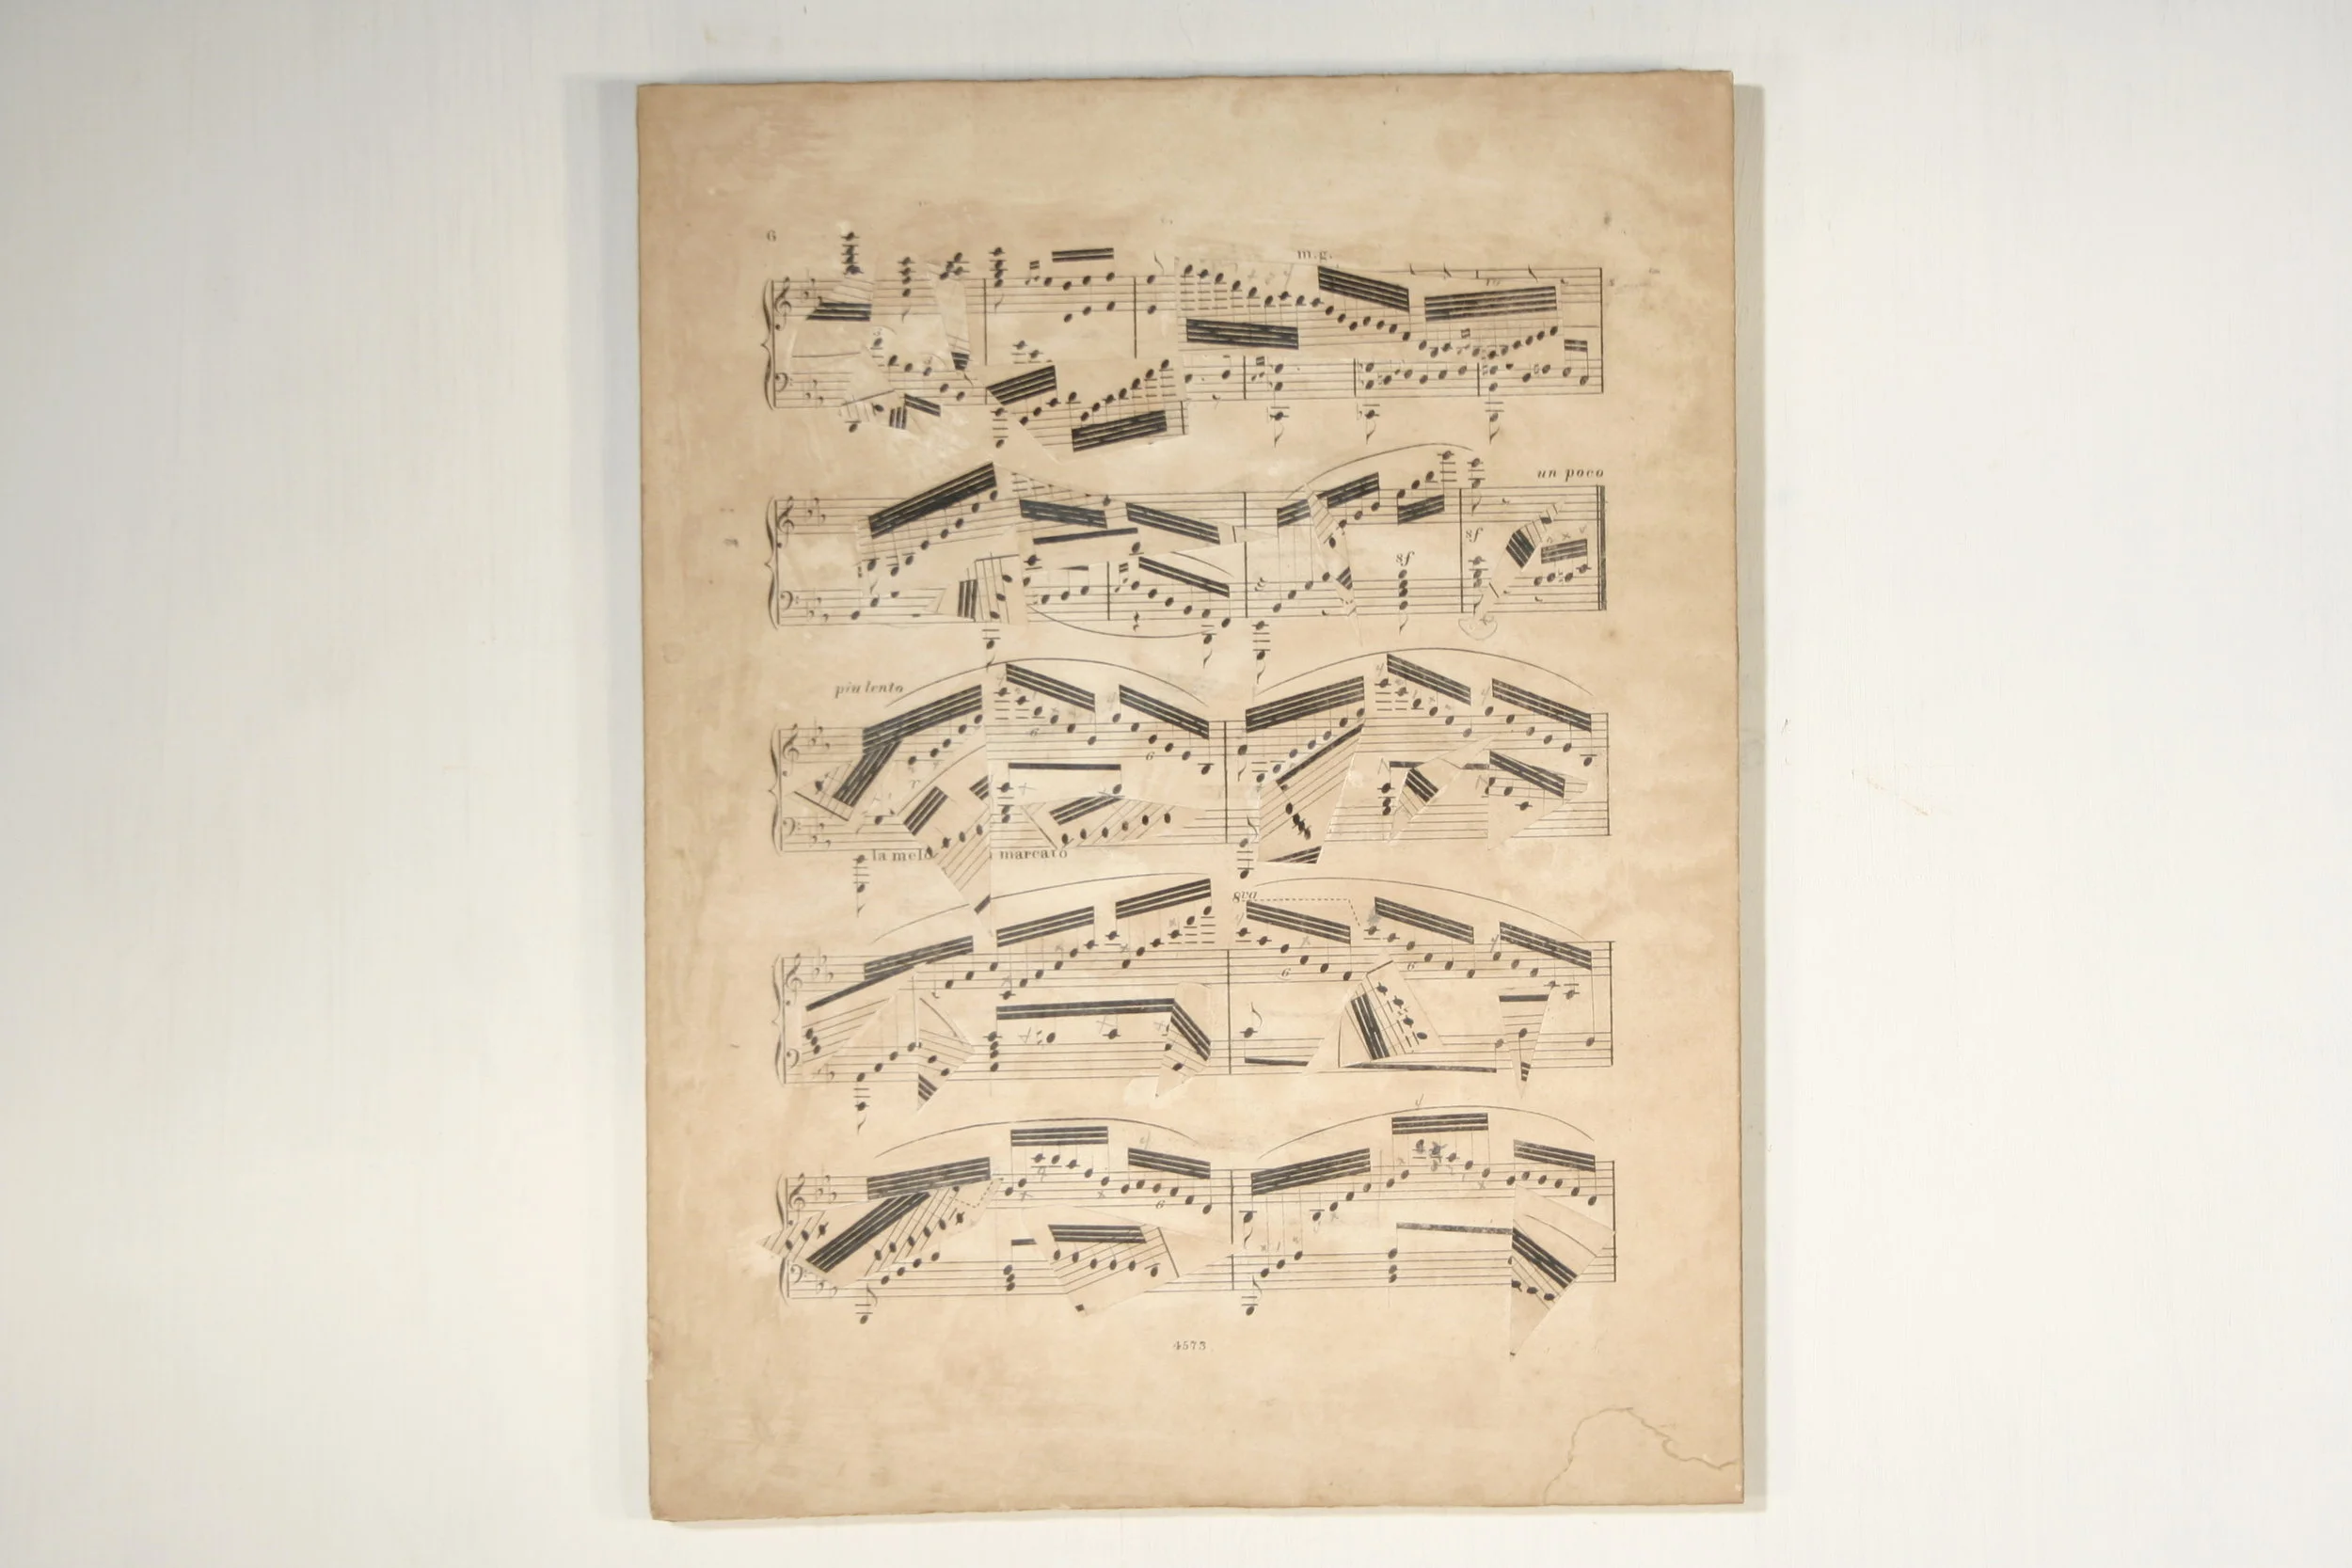 6
m.g.
un poco
sf
sf
piu lento
6
6
la melo marcato
8va
6
6
6
4573